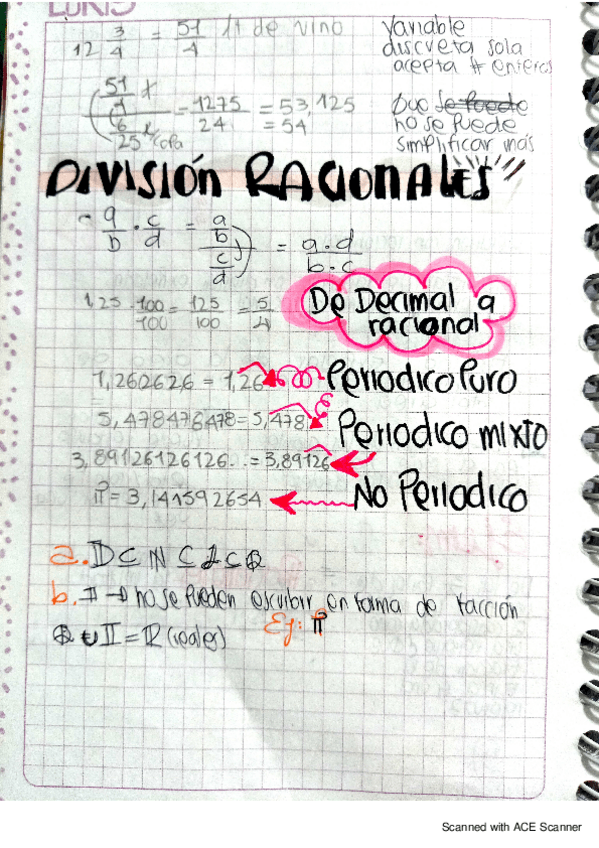 12 3/4 = 51/4 lt de vino
Variable
discreta sola
acepta # enteros
51/4 / 6/25 = 1275/24 = 53,125
= 54
que se puede
no se puede
simplificar más
DIVISIÓN RACIONALES
a/b · c/d = a/b / c/d = a·d / b·c
1,25 · 100/100 = 125/100 = 5/4
De Decimal a
racional
1,262626 = 1,26
Periodico Puro
5,478476478 = 5,478
Periodico mixto
3,89126126126... = 3,89126
π = 3,141592654
No Periodico
b. II → no se pueden escribir en forma de facción
Q ∪ II = R (reales) Ej: π
Scanned with ACE Scanner